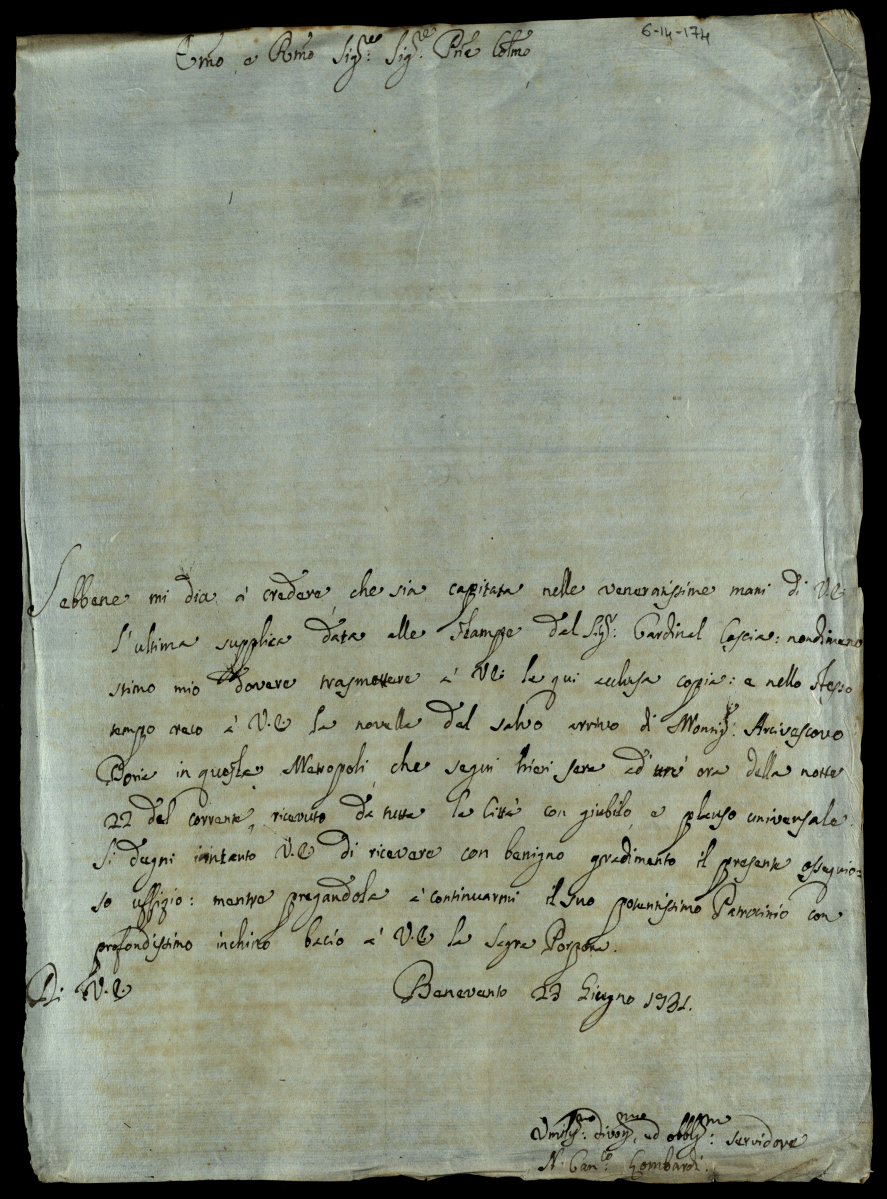 6-14-174
Emo, e Rmo Sig:re Sig:re Prne Colmo
Sebbene mi dia à credere, che sia capitata nelle veneratissime mani di V.E.
l'ultima supplica data alle stampe dal Sig:r Cardinal Coscia: nondimeno
stimo mio dovere trasmettere à V.E. la qui acclusa copia: e nello stesso
tempo reco à V.E. la novella del salvo arrivo di Monsig:r Arcivescovo
Doria in questa Metropoli, che seguì hieri sera ad un' ora della notte
22 del corrente, ricevuto da tutta la Città con giubilo, e plauso universale.
Si degni intanto V.E. di ricevere con benigno gradimento il presente ossequio=
so uffizio: mentre pregandola à continuarmi il suo potentissimo Patrocinio con
profondissimo inchino bacio à V.E. la Sagra Porpora.
Di V.E.
Benevento 23 Giugno 1731.
Umiliss:mo divotis:mo, ed obblig:mo servidore
N. Can:co Lombardi.